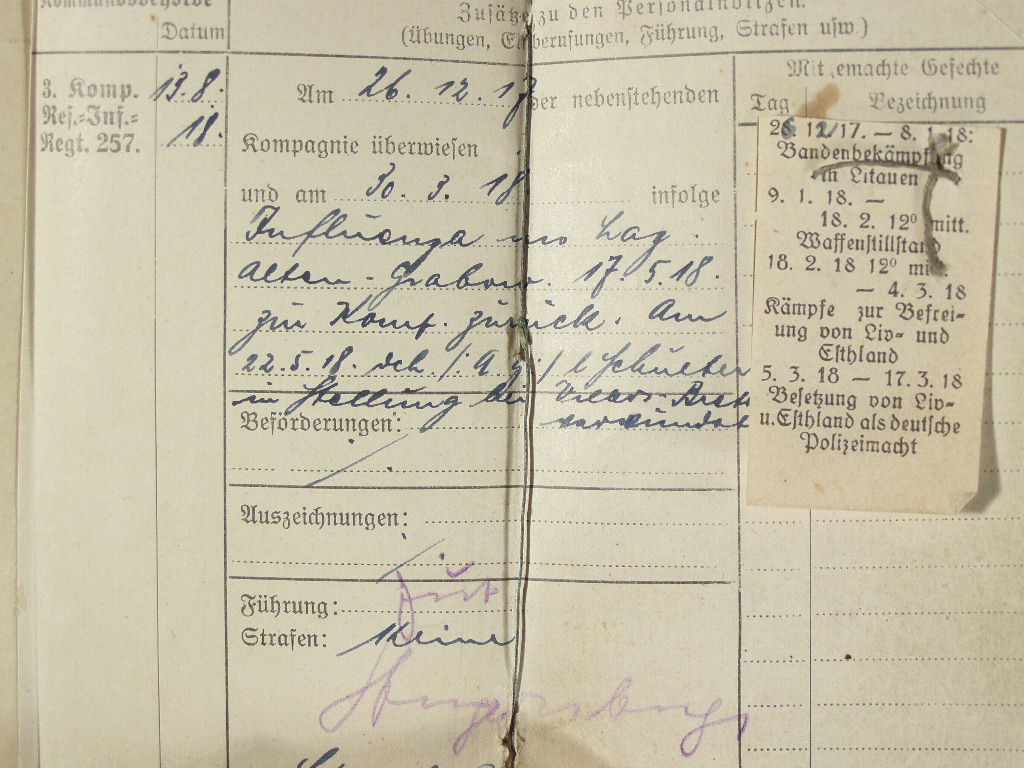 Kommandobehörde
Datum
Zusätze zu den Personalnotizen.
(Übungen, Einberufungen, Führung, Strafen usw.)
3. Komp.
Res.-Inf.-
Regt. 257.
13.8.
18.
Am 26. 12. 17 der nebenstehenden
Kompagnie überwiesen
und am 30. 3. 18 infolge
Influenza ins Laz.
Alten-Grabow. 17.5.18.
zur Komp. zurück. Am
22.5.18. dch /: A. G. / l Schulter
in Stellung bei
verwundet
Beförderungen:
/.
Auszeichnungen:
/.
Führung: gut
Strafen: Keine
Mitgemachte Gefechte
Tag Bezeichnung
26. 12/17. — 8. 1. 18:
Bandenbekämpfung
in Litauen
9. 1. 18. —
18. 2. 12⁰ mitt.
Waffenstillstand
18. 2. 18 12⁰ mi
— 4. 3. 18
Kämpfe zur Befrei-
ung von Liv- und
Esthland
5. 3. 18 — 17. 3. 18
Besetzung von Liv-
u. Esthland als deutsche
Polizeimacht